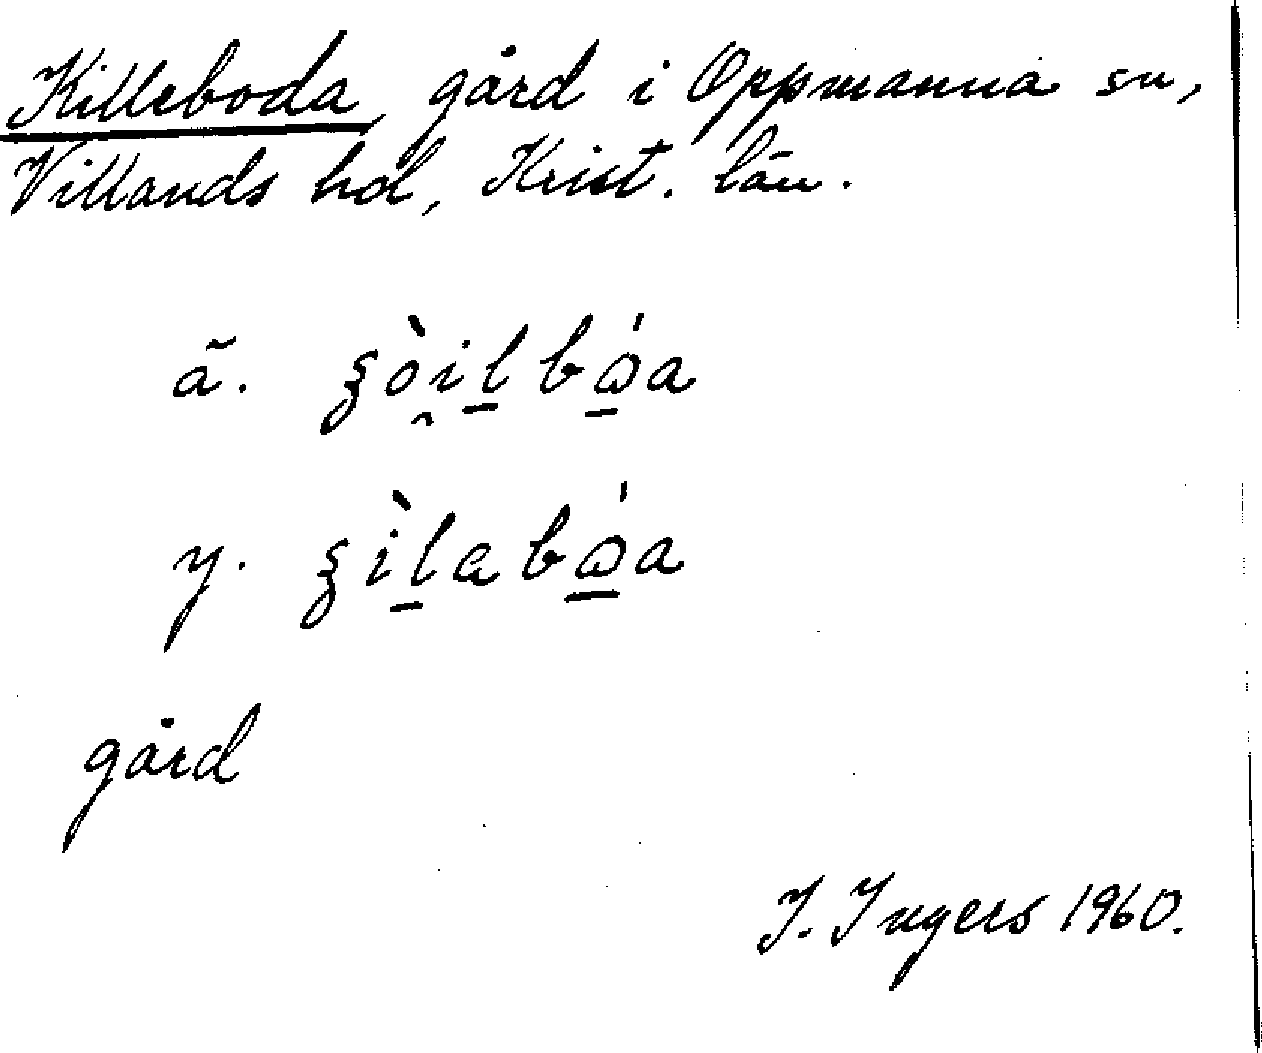 Killeboda, gård i Oppmanna sn,
Villands hd, Krist. län.
ä. ʂòi̯l̲bώ̲a
y. ʂìl̲abώ̲a
gård
I. Ingers 1960.